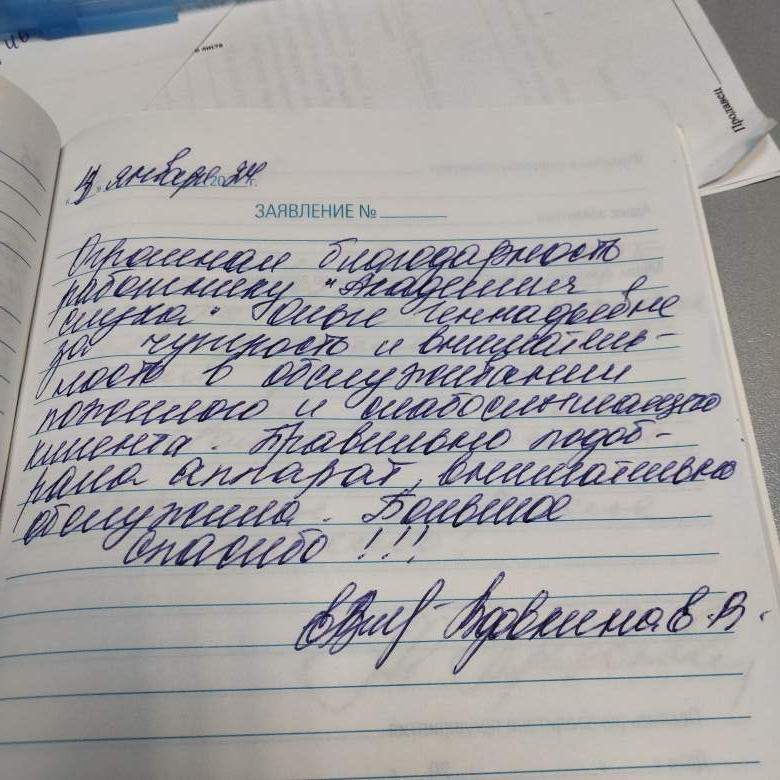 ив
о листа
Продавец
"4" января 2024 г.
ЗАЯВЛЕНИЕ №
Огромная благодарность
работнику "Академия
слуха" Ольге Геннадьевне
за чуткость и вниматель-
ность в обслуживании
пожилого и слабослышащего
клиента. Правильно подоб-
рала аппарат, внимательно
обслужила. Большое
спасибо!!!
Вдовкина Е.В.